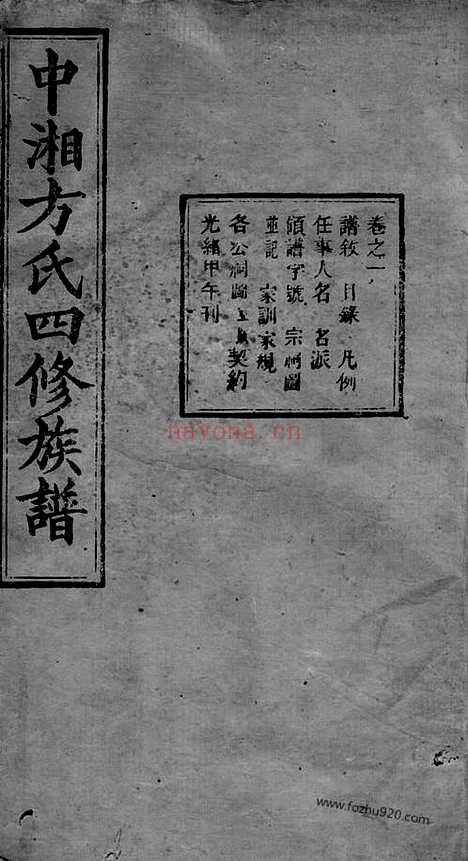 中湘方氏四修族譜
卷之一
譜敘 目錄 凡例
任事人名 名派
領譜字號 宗祠圖
並記 家訓家規
各公祠圖 契約
光緒甲午刊
nayona.cn
www.fozhu920.com